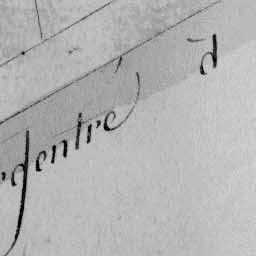 rgentré d